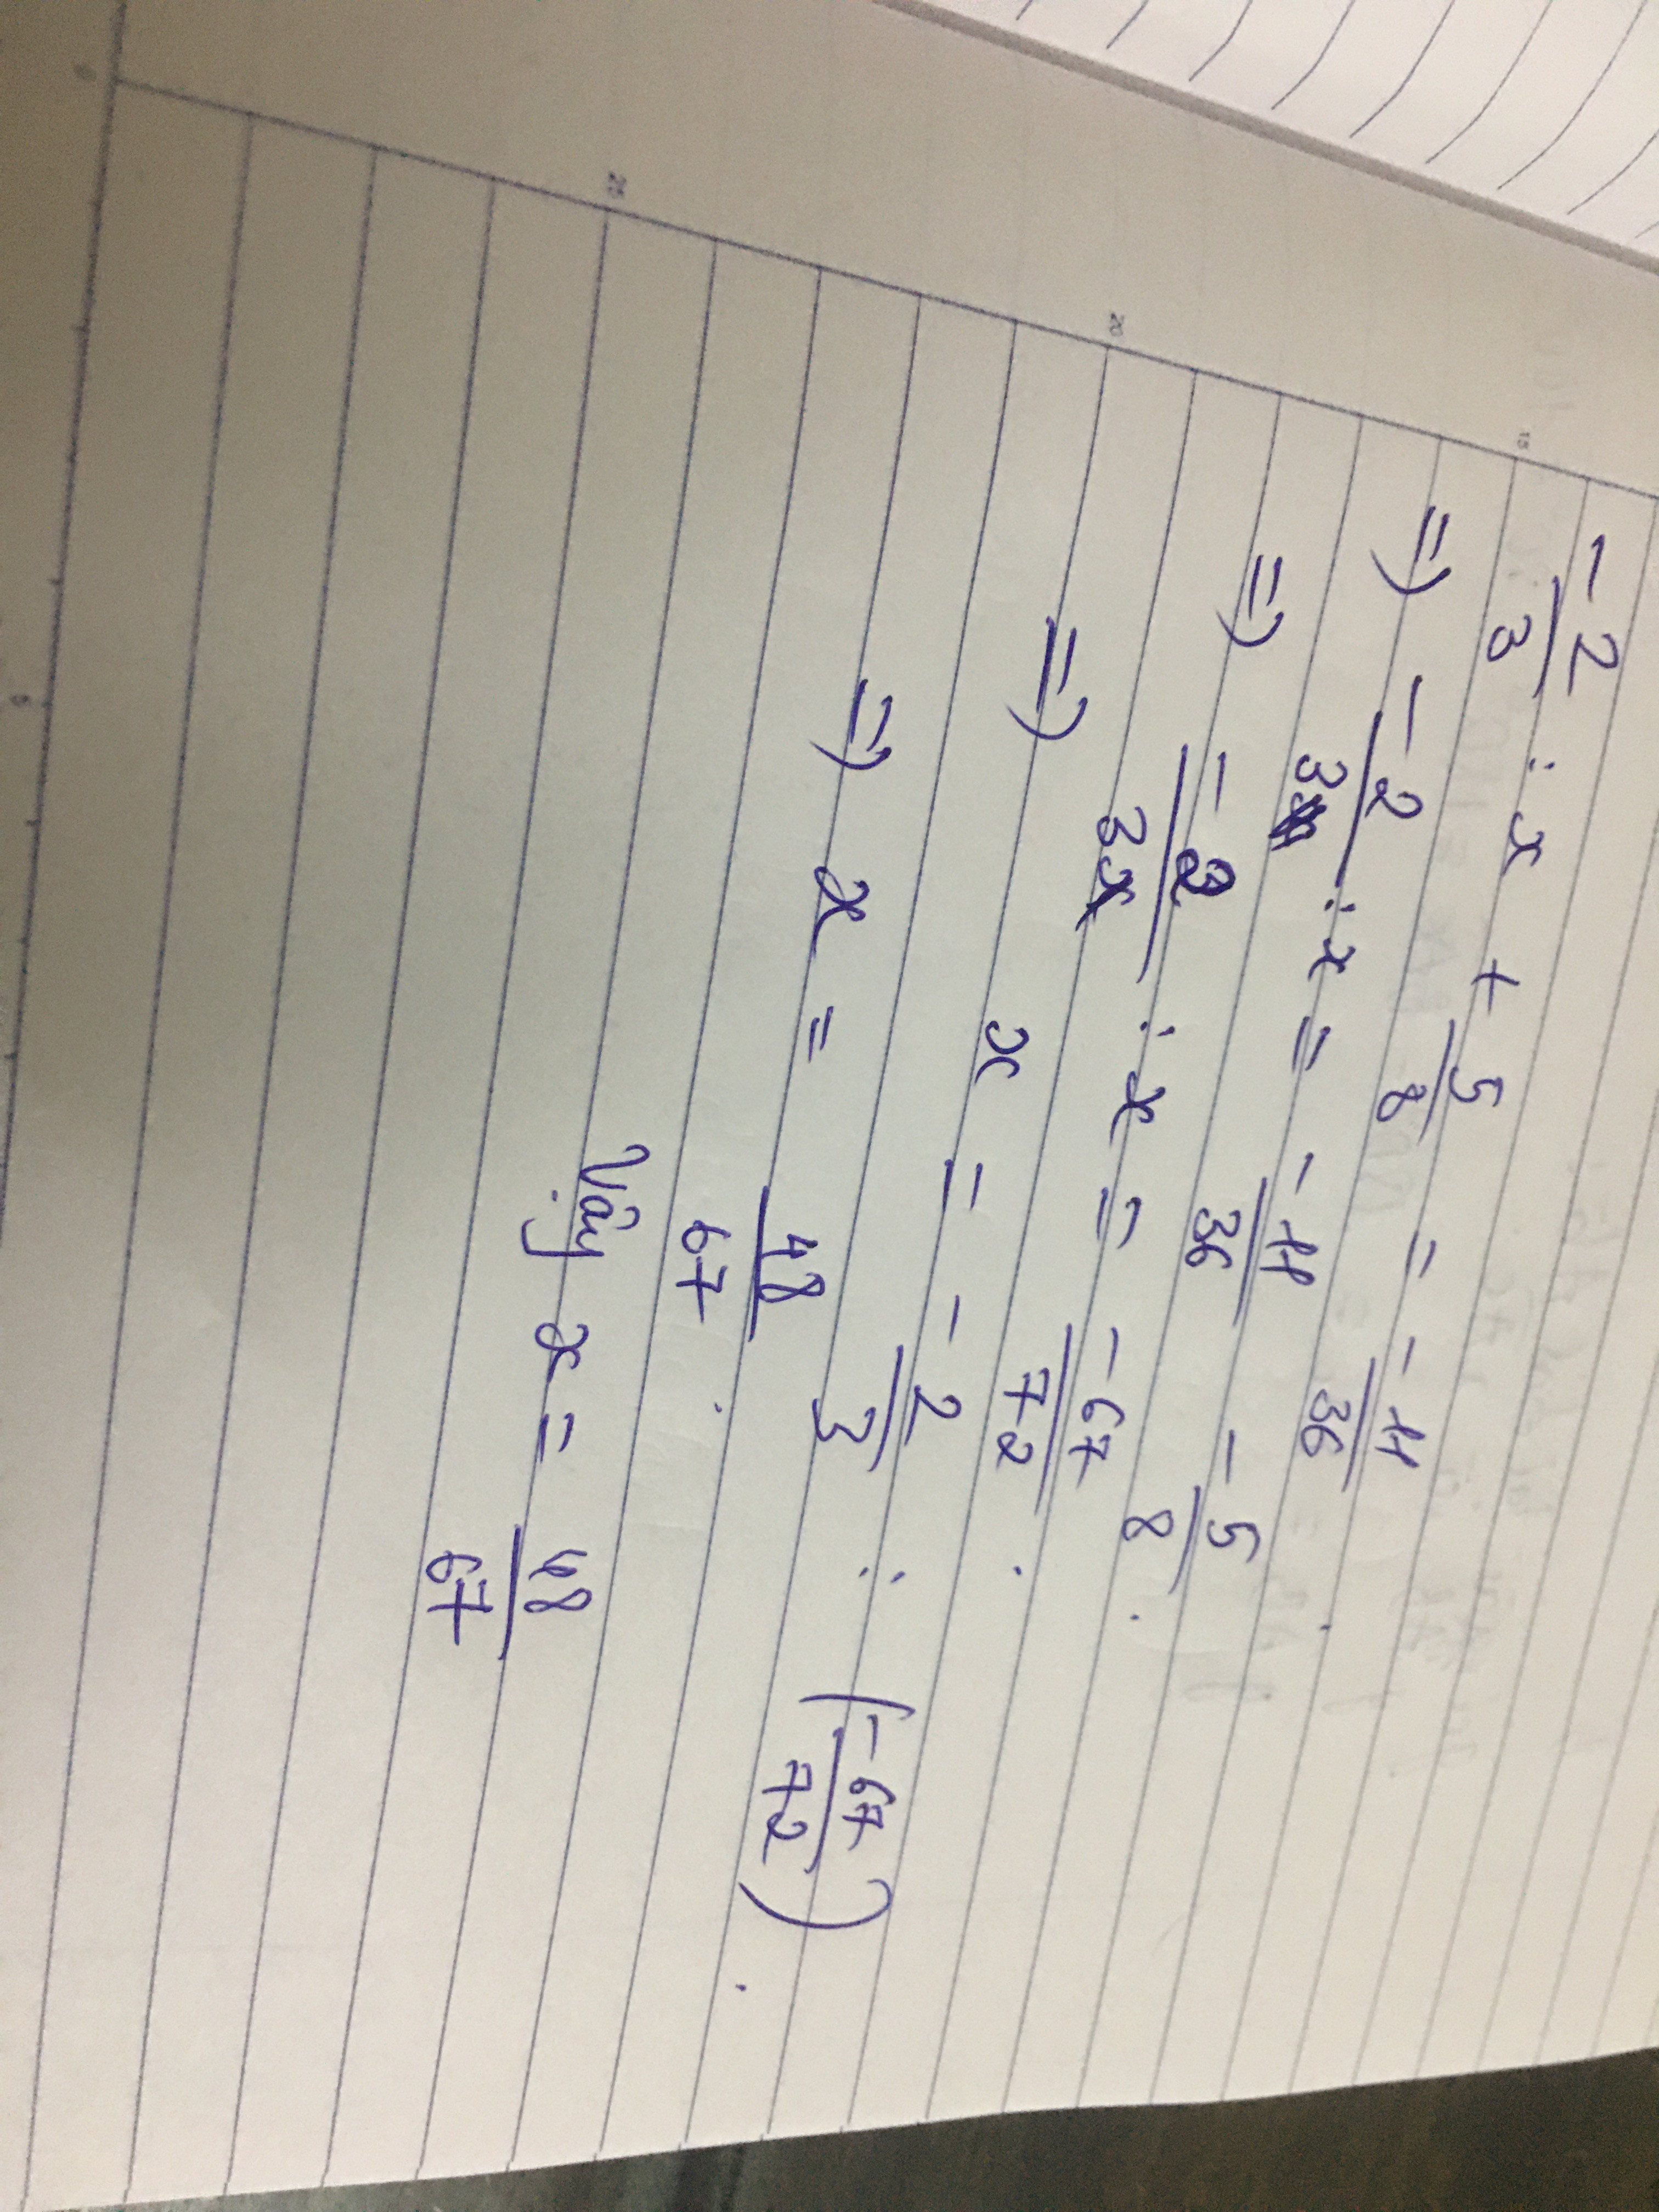 -2/3 : x + 5/8 = -11/36 .
=) -2/3 : x = -11/36 - 5/8 .
=) -2/3 : x = -67/72 .
=) x = -2/3 : (-67/72) .
=) x = 48/67 .
Vậy x = 48/67
15
20
25
0
5